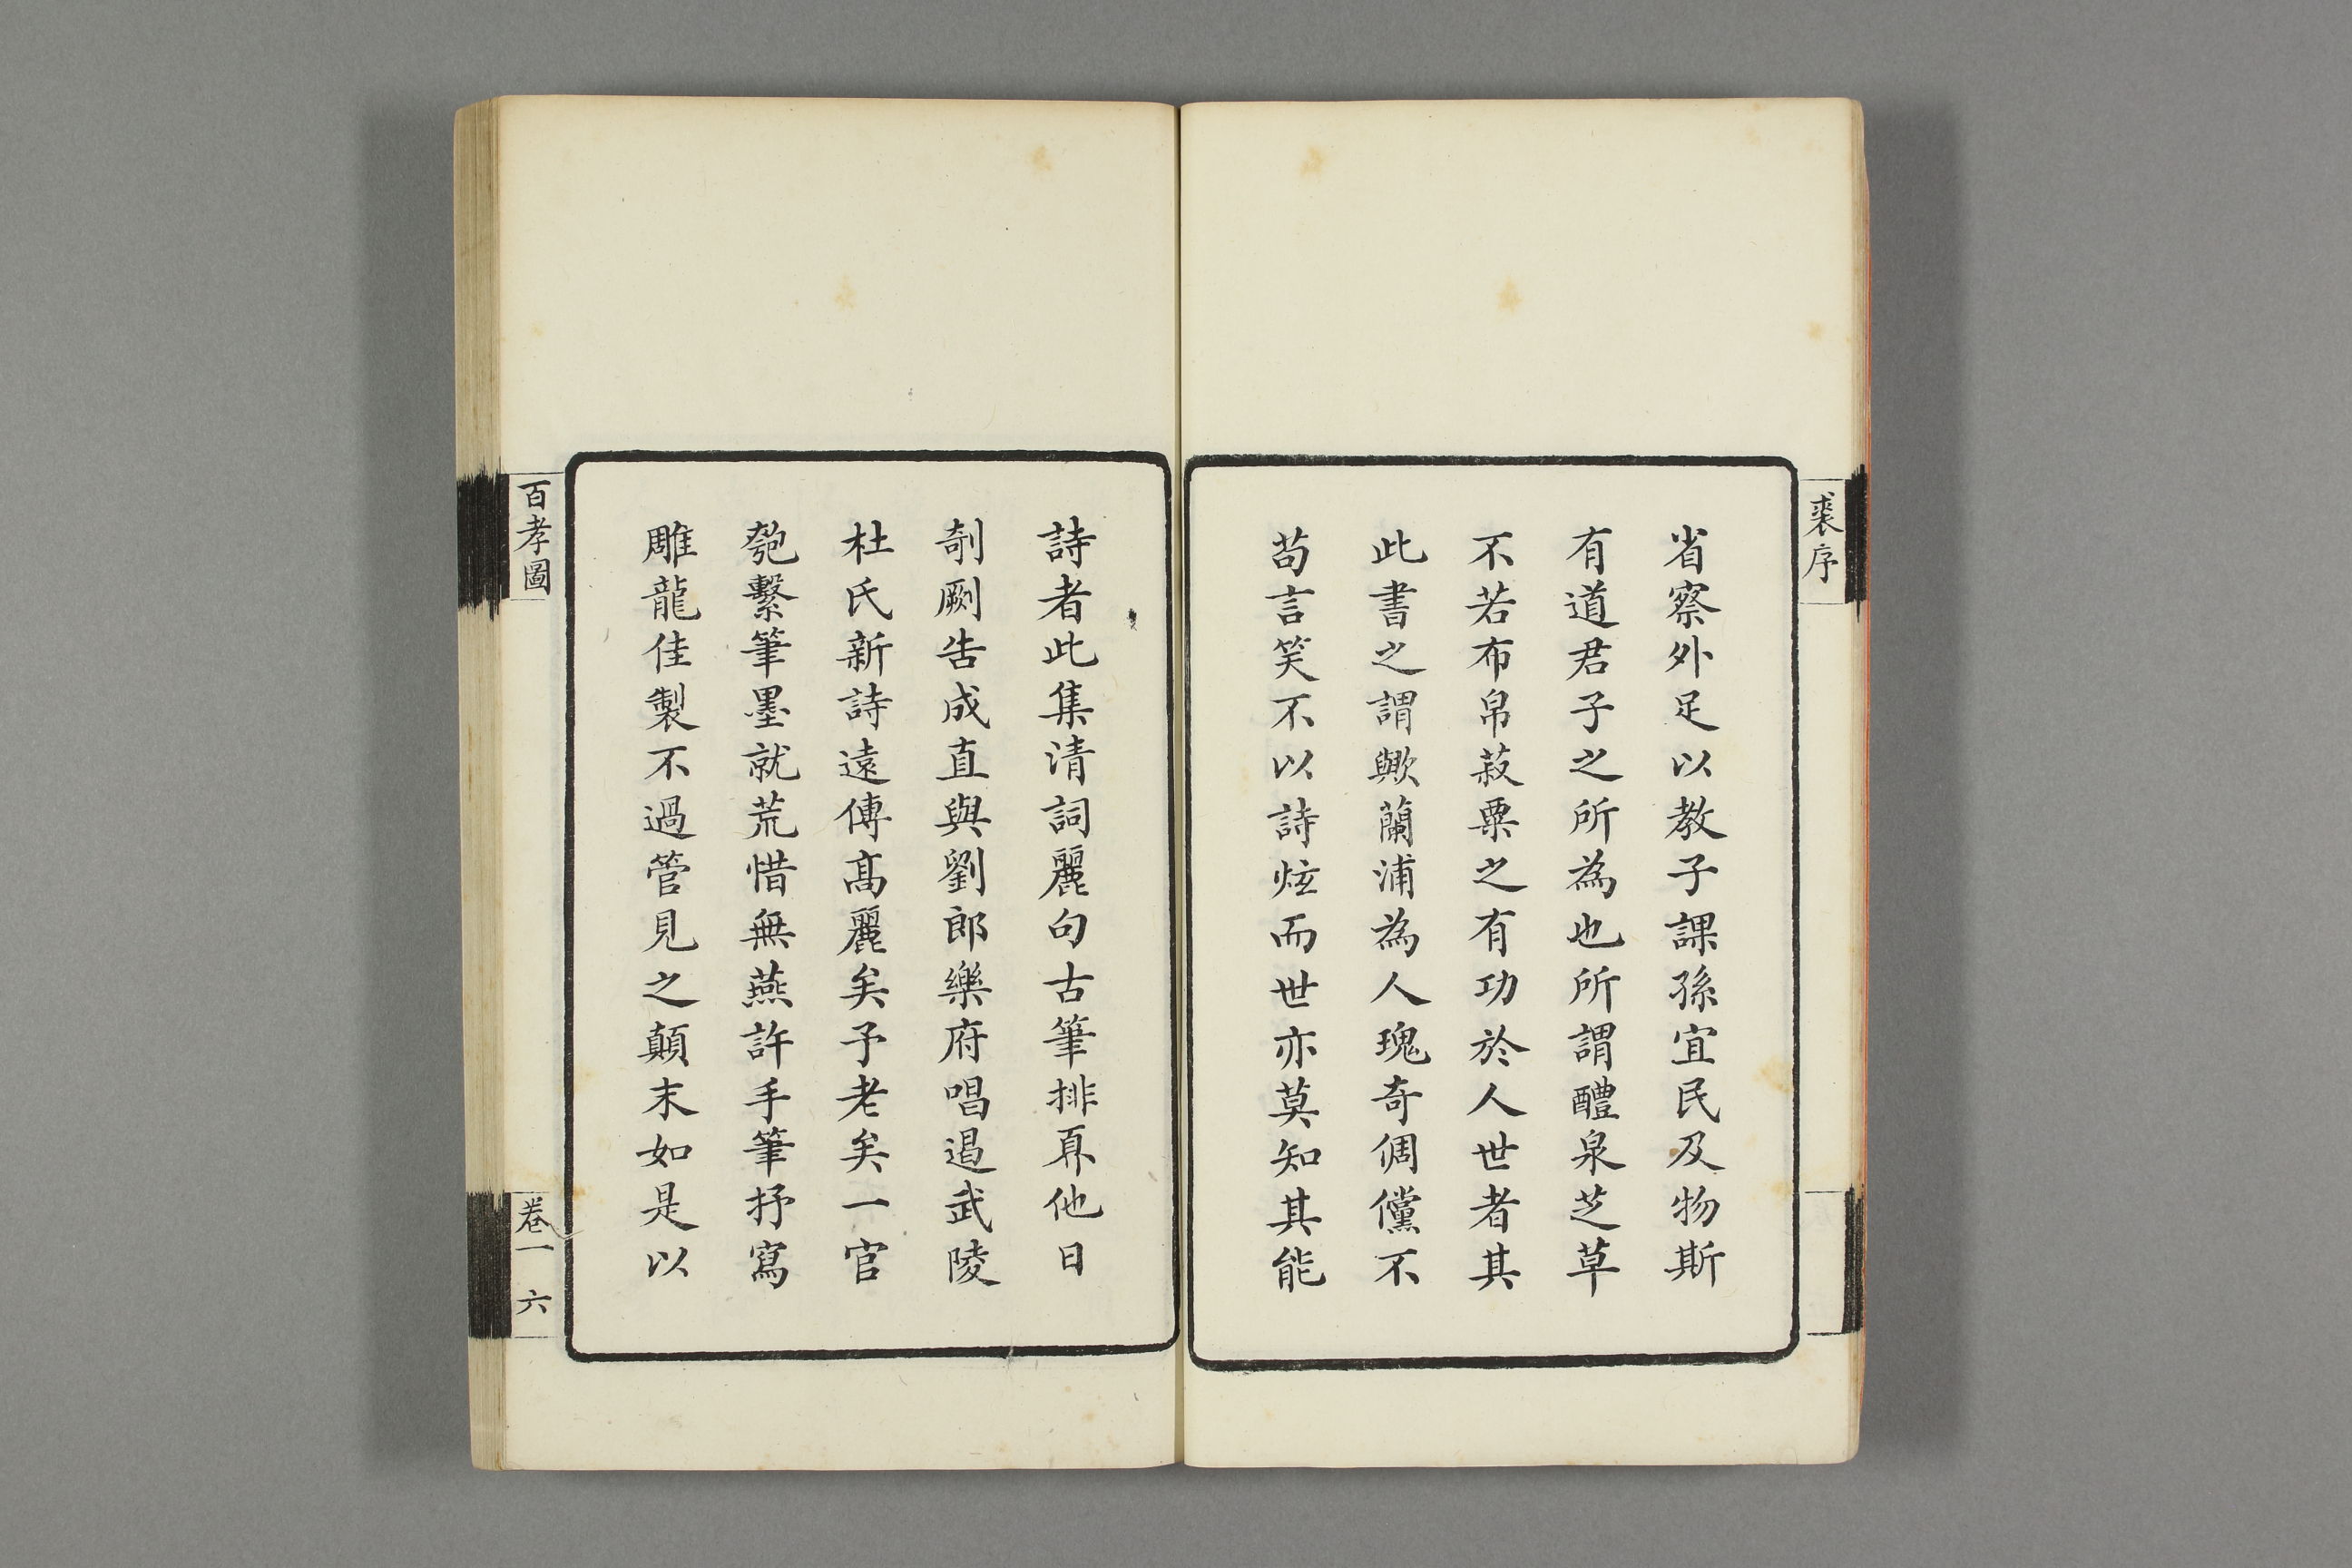 裘序
省察外足以教子課孫宜民及物斯
有道君子之所為也所謂醴泉芝草
不若布帛菽粟之有功於人世者其
此書之謂歟蘭浦為人瑰奇倜儻不
苟言笑不以詩炫而世亦莫知其能
詩者此集清詞麗句古筆排奡他日
剞劂告成直與劉郎樂府唱遏武陵
杜氏新詩遠傳髙麗矣予老矣一官
匏繫筆墨就荒惜無燕許手筆抒寫
雕龍佳製不過管見之顛末如是以
百孝圖
卷一 六